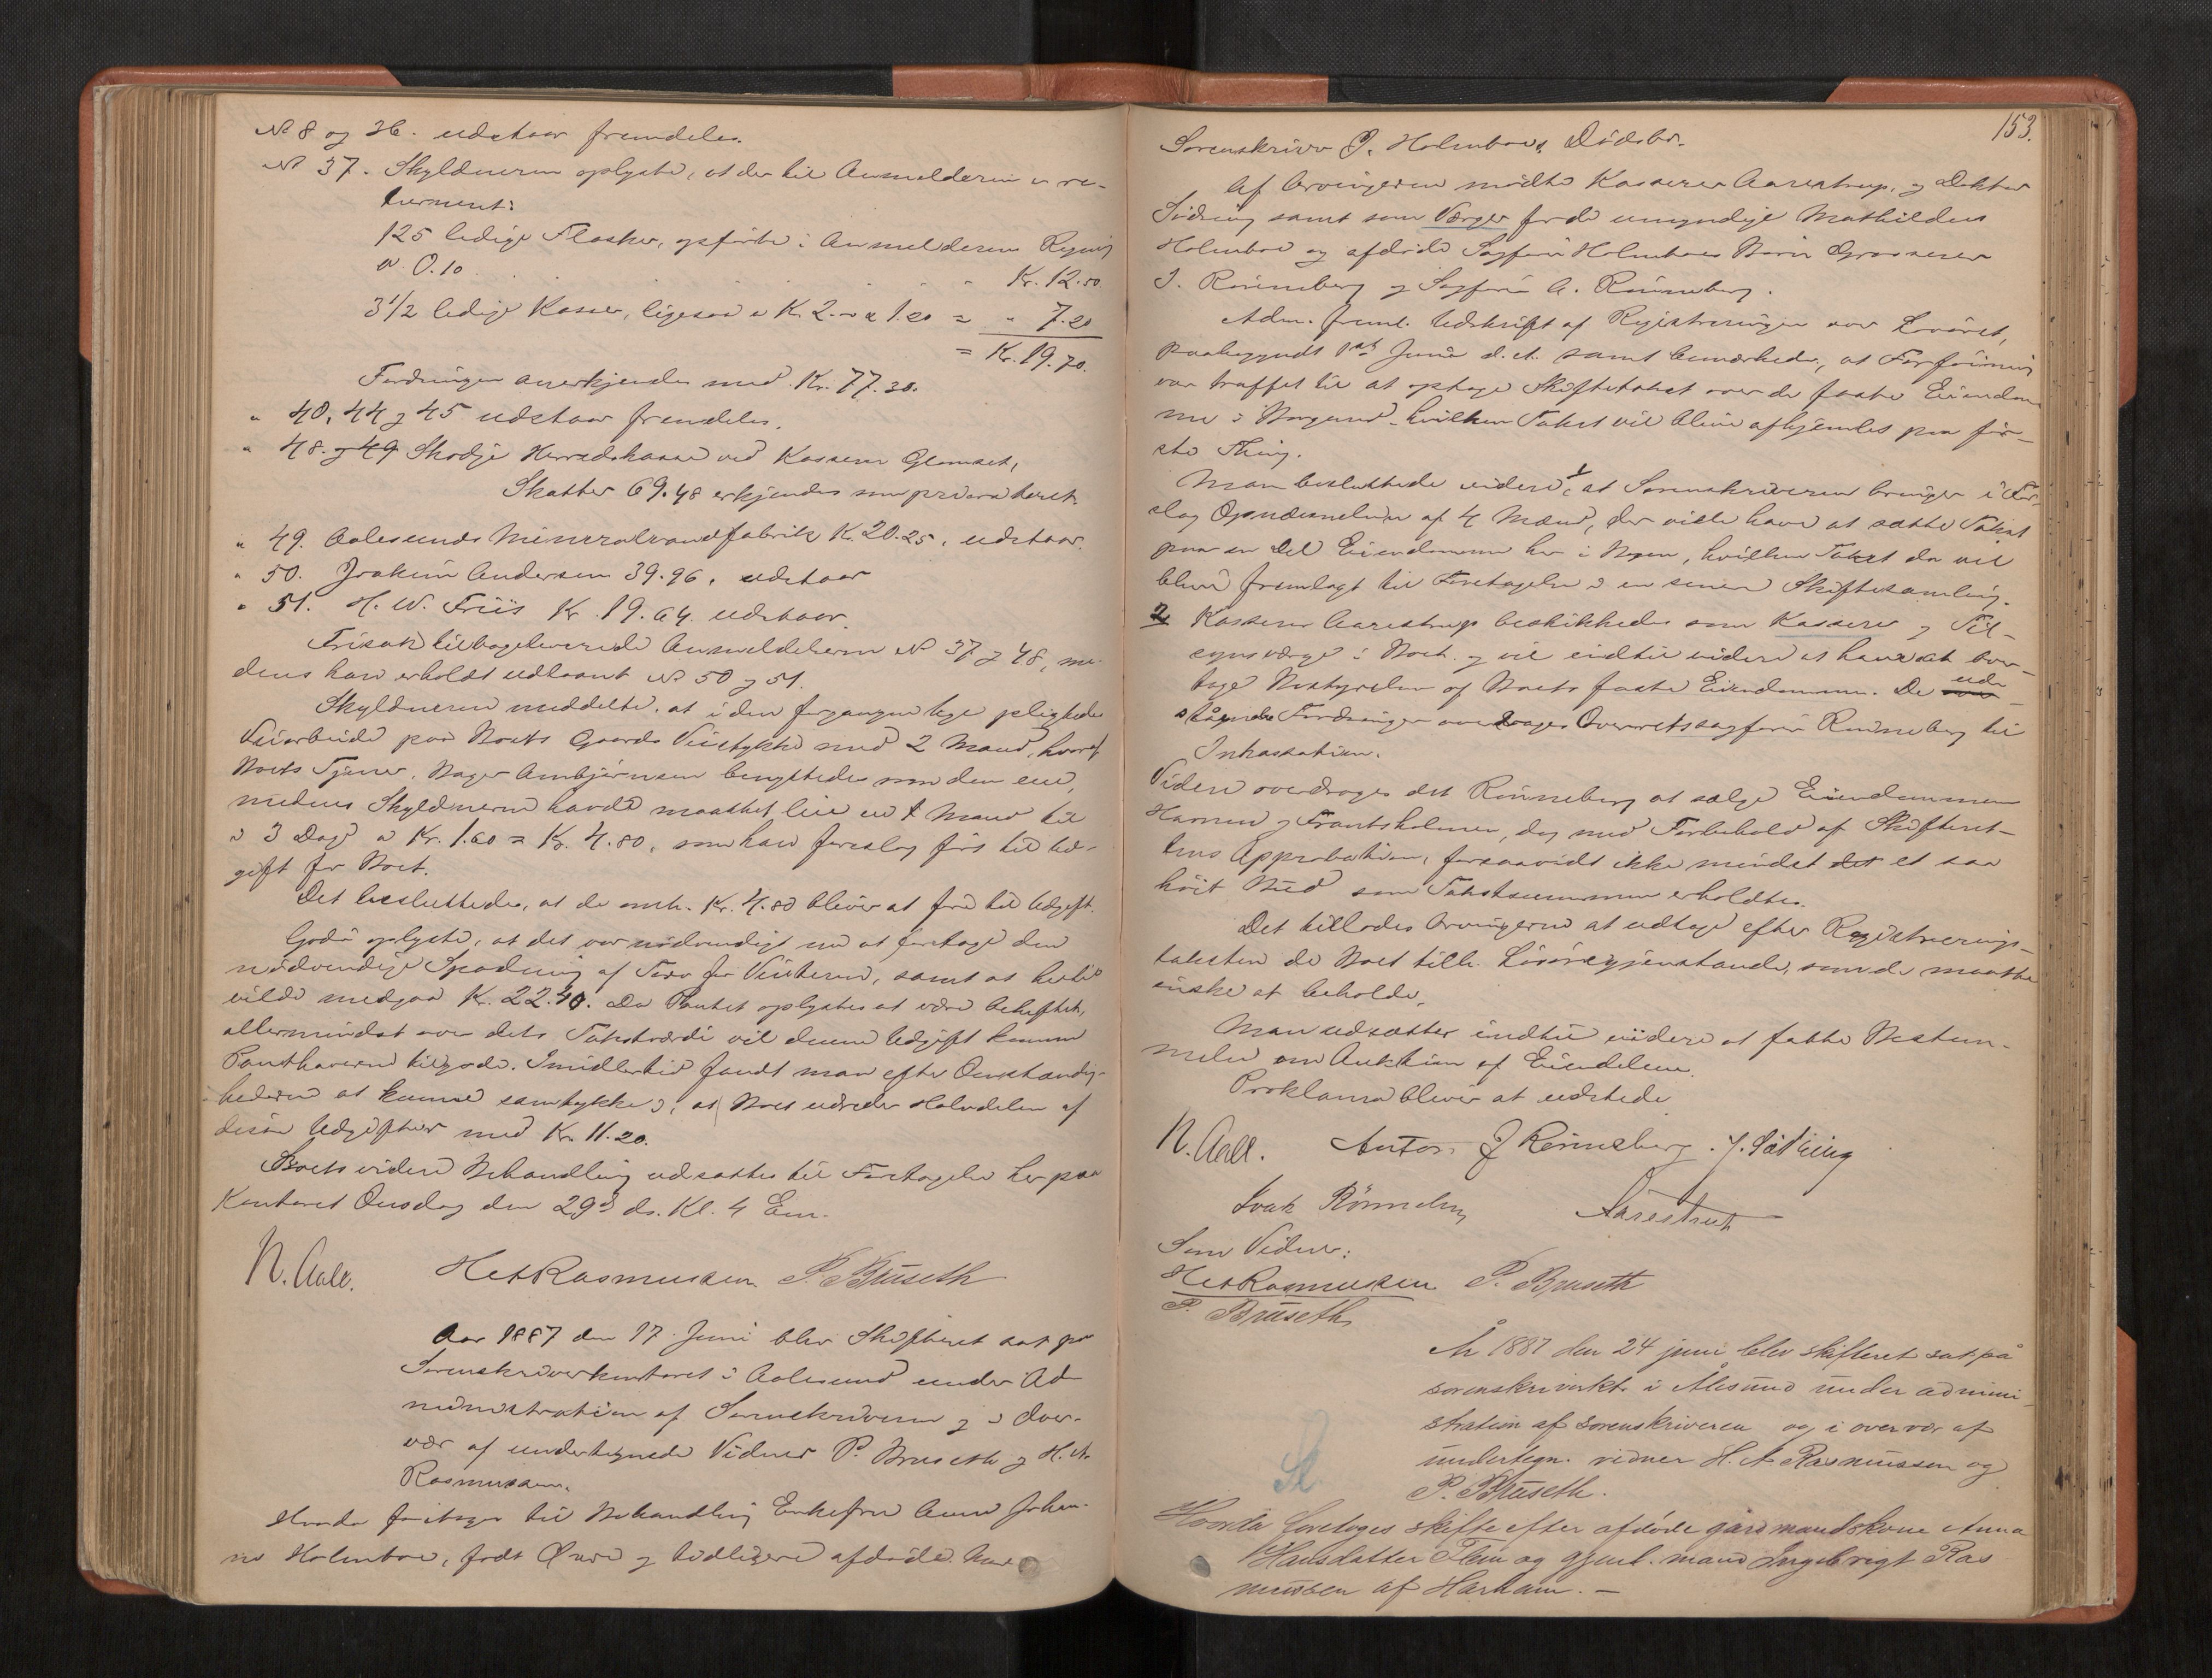 No 8 og 36. udstaar fremdeles.
No 37. Skyldneren oplyste, at der til Anmelderen er re-
turneret:
125 ledige Flasker, opførte i Anmelderens Regning
a 0.10 . . . . . . Kr. 12.50
3 1/2 ledige Kasser, ligesaa a Kr. 2.- a 1.20 = " 7.20
= Kr. 19.70.
Fordringen anerkjendes med Kr. 77.30.
" 40, 44 og 45 udstaar fremdeles.
" 48. og 49 Skodje Herredskasse ved Kasserer Glomset,
Skatter 69.48 erkjendes som prioriteret.
" 49. Aalesunds Mineralvandfabrik K. 20.25, udstaar.
" 50. Joakim Andersen 39.96, udstaar
" 51. H. W. Friis Kr. 19.64 udstaar.
Frisak tilbageleverede Anmeldelserne No 37 og 48, me-
dens han erholdt udlaant No 50 og 51.
Skyldneren meddelte, at i den forgangne Uge pligtedes
Veiarbeide paa Boets Gaards Veistykke med 2 Mand, hvoraf
Boets Tjener, Bager Ambjørnsen benyttedes som den ene,
medens Skyldneren havde maattet leie en 1 Mand til
i 3 Dage a Kr. 1.60 = Kr. 4.80, som han foreslogført til Ud-
gift for Boet.
Det besluttedes, at de omh. Kr. 4.80 bliver at føre til Udgift.
Godø oplyste, at det var nødvendigt nu at foretage den
nødvendige Spadning af Torv for Vinteren, samt at hertil
vilde medgaa Kr. 22.40. Da Pantet oplystes at være beheftet,
allermindst over dets Takstværdi vil denne Udgift komme
Panthaverne tilgode. Imidlertid fandt man efter Omstændig-
hederne at kunne samtykke i, at Boet udreder Halvdelen af
disse Udgifter med Kr. 11.20.
Boets videre Behandling udsattes til Foretagelse her paa
Kontoret Onsdag den 29de ds. Kl. 4 Em.
N. Aall. H A Rasmussen P. Bruseth
Aar 1887 den 17. Juni blev Skifteret sat paa
Sorenskriverkontoret i Aalesund under Ad-
ministration af Sorenskriveren og i Over-
vær af undertegnede Vidner P. Bruseth og H. A.
Rasmussen.
Hvorda foretoges til Behandling Enkefru Anne Johan-
ne Holmboe, født Øwre og tidligere afdøde Mand
153.
Sorenskriver J. Holmboes Dødsbo.
Af Arvingerne mødte Kasserer Aarestrup, og Doktor
Sødring samt som Værger for de umyndige Mathildes
Holmboe og afdøde Sagfører Holmboes Børn Grosserer
I. Rønneberg og Sagfører A. Rønneberg.
Adm. freml. Udskrift af Registreringen over Løsøret,
paabegyndt 1st Juni d. A. samt bemærkede, at Forføining
var truffet til at optage Skiftetakst over de faste Eiendom-
me i Borgund, hvilken Takst vil blive afhjemlet paa før-
ste Thing.
Man besluttede videre, 1, at Sorenskriveren bringer i For-
slag Opnævnelsen af 4 Mænd, der ville have at sætte Takst
paa en Del Eiendomme her i Byen, hvilken Takst da vil
blive fremlagt til Foretagelse i en senere Skiftesamling.
2, Kasserer Aarestrup beskikkedes som Kasserer og Til-
synsværge i Boet, og vil indtil videre at have at over-
tage Bestyrelsen af Boets faste Eiendomme. De ude
staaende Fordringer overdrages Overretssagfører Rønneberg til
Inkassation.
Videre overdroges det Rønneberg at sælge Eiendommene
Hamna og Frantsholmen, dog med Forbehold af Skifteret-
tens Approbation, forsaavidt ikke mindst det et saa
høit Bud som Takstsummen erholdtes.
Det tillodes Arvingerne at udtage efter Registrerings-
taksten de Boet tilh. Løsøregjenstande, som de maatte
ønske at beholde.
Man udsætter indtil videre at fatte Bestem-
melse om Auktion af Eiendelene.
Proklama bliver at udstede
N. Aall. Anton J Rønneberg. J. Sødring
Ivar Rønneberg Aarestrup
Som Vidner:
H A Rasmussen P. Bruseth
P. Bruseth
År 1887 den 24 juni blev skifteret sat på
sorenskriverkt. i Ålesund under admini-
stration af sorenskriveren og i overvær af
undertegn. vidner H. A Rasmussen og
P. Bruseth.
Hvorda foretoges skifte efter afdøde gårdmandskone Anna
Hansdatter Flem og gjenl. mand Ingebrigt Ras
mussen af Harham. —